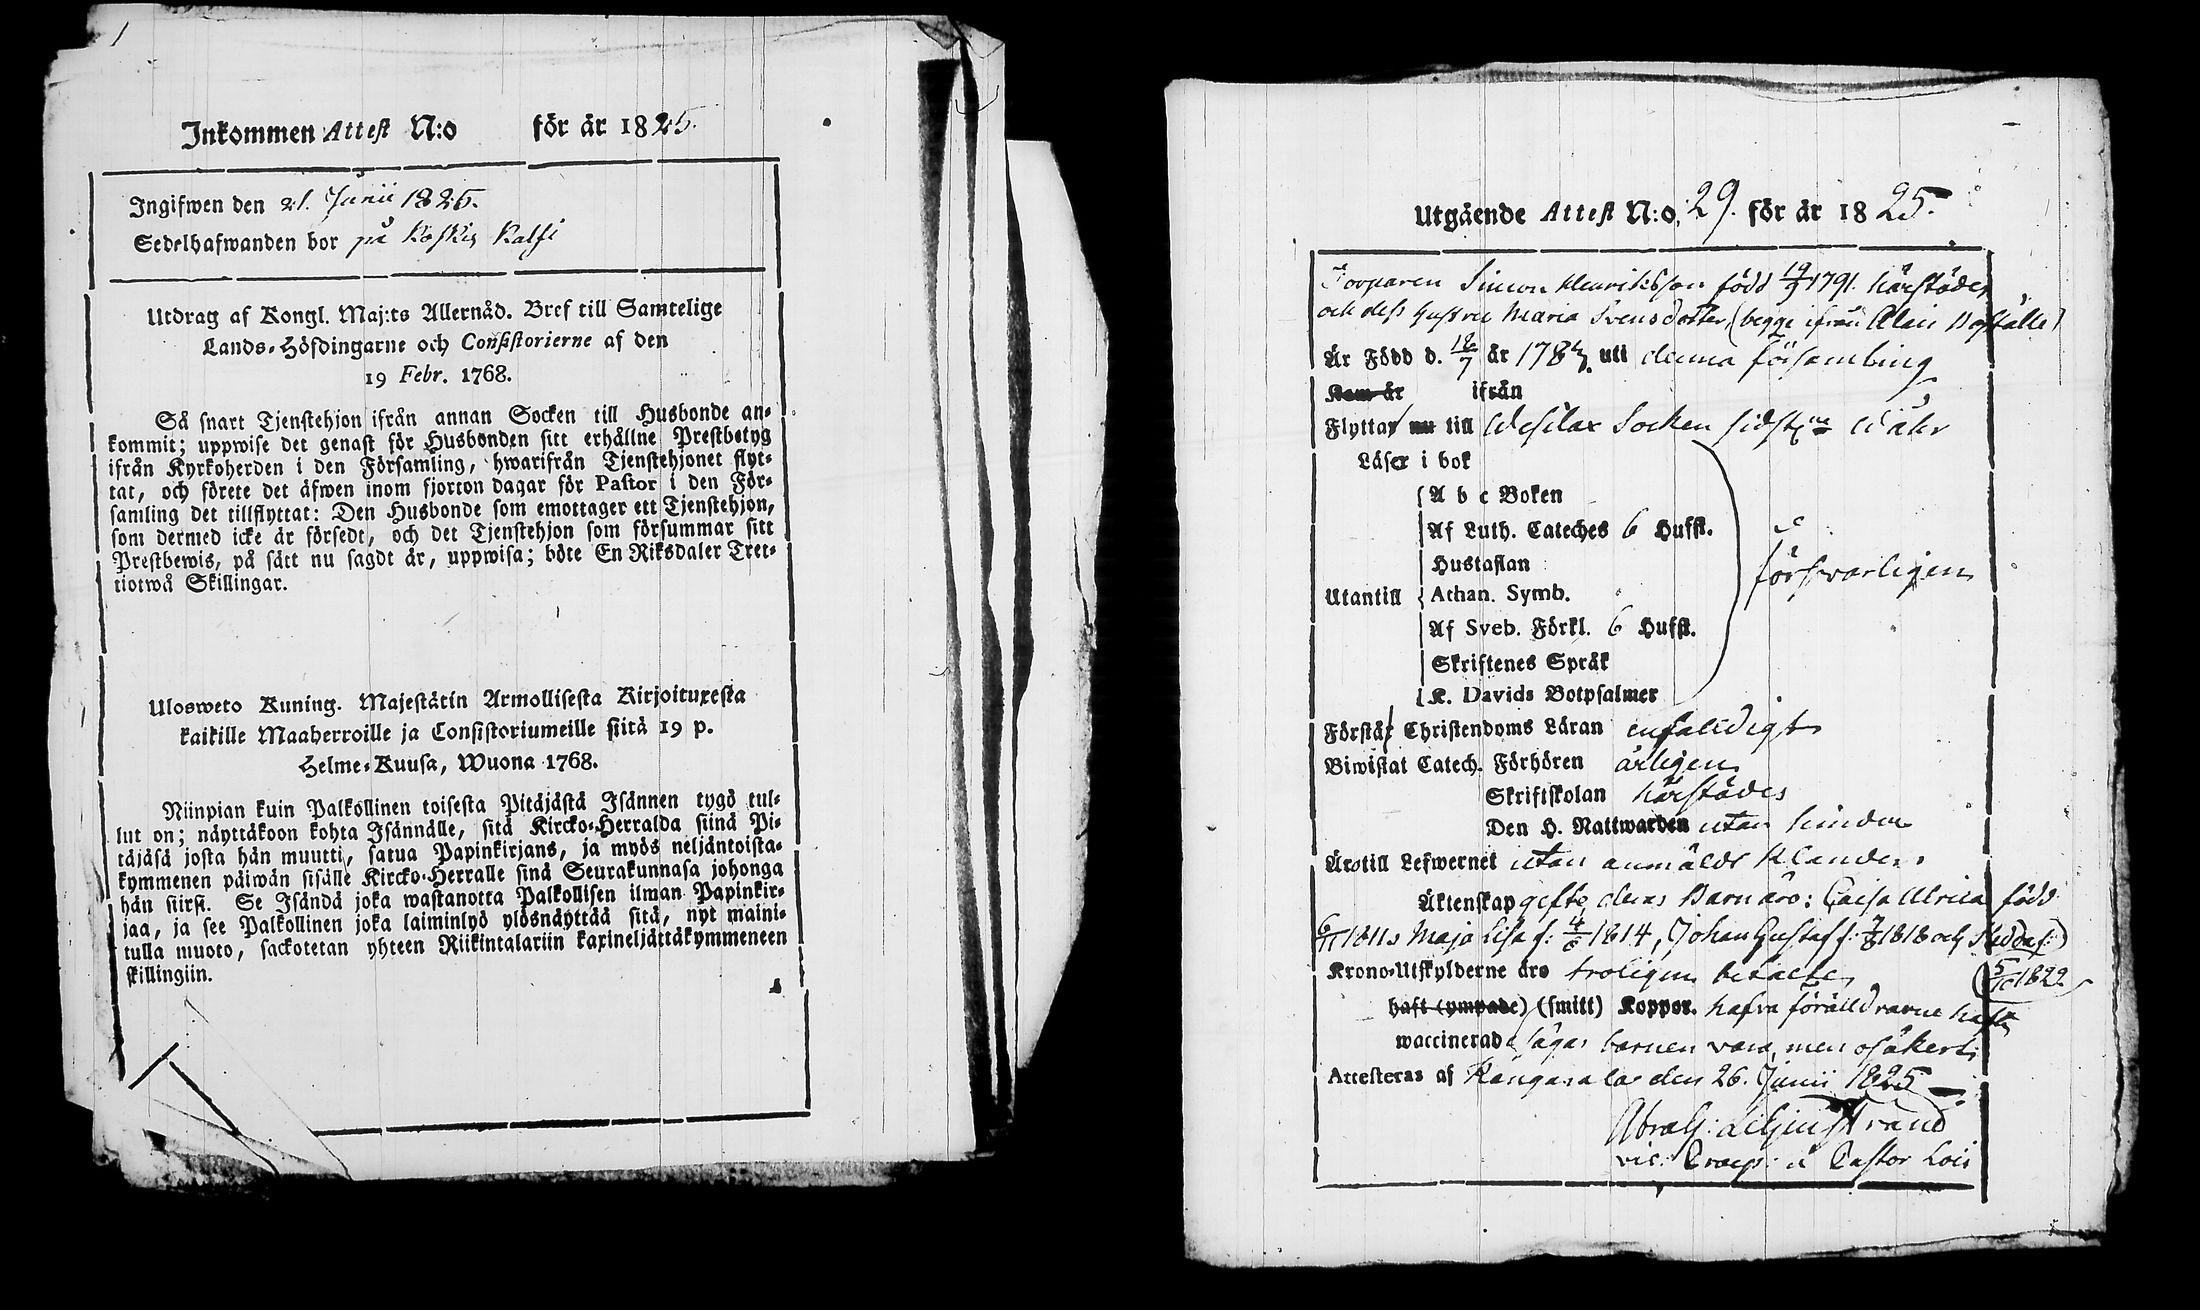 Inkommen Attest N:o för år 1825.
Ingifwen den 21. Junii 1825.
Sedelhafwanden bor på Koskis Kalsi
Utdrag af Kongl. Maj:ts Allernåd. Bref till Samtelige
Lands-Höfdingarne och Consistorierne af den
19 Febr. 1768.
Så snart Tjenstehjon ifrån annan Socken till Husbonde an-
kommit; uppwise det genast för Husbonden sitt erhållne Prestbetyg
ifrån Kyrkoherden i den Församling, hwarifrån Tjenstehjonet flyt-
tat, och förete det äfwen inom fjorton dagar för Pastor i den För-
samling det tillflyttat: Den Husbonde som emottager ett Tjenstehjon,
som dermed icke är försedt, och det Tjenstehjon som försummar sitt
Prestbewis, på sätt nu sagdt är, uppwisa; böte En Riksdaler Tret-
tiotwå Skillingar.
Ulosweto Kuning. Majestätin Armollisesta Kirjoituxesta
kaikille Maaherroille ja Consistoriumeille siitä 19 p.
Helme-Kuusa, Wuona 1768.
Niinpian kuin Palkollinen toisesta Pitäjästä Isännen tygö tul-
lut on; näyttäkoon kohta Isännälle, sitä Kircko-Herralda siinä Pi-
täjäsä josta hän muutti, satua Papinkirjans, ja myös neljäntoista-
kymmenen päiwän sisälle Kircko-Herralle sinä Seurakunnasa johonga
hän siirsi. Se Isändä joka wastanotta Palkollisen ilman Papinkir-
jaa, ja see Palkollinen joka laiminlyö ylösnäyttää sitä, nyt maini-
tulla muoto, sackotetan yhteen Riikintalariin kaxineljättäkymmeneen
skillingiin.
Utgående Attest N:o 29. för år 1825.
Simon Henriksson född 19/9 1791. härstädes
och dess hustru Maria Svensdotter (begge ifrån Boställe)
Är Född d. 18/7 år 1787. uti denna församling
Kom år ifrån
Flyttar nu till Wesilax Socken sidstne Wåhr
Läser i bok
A b c Boken
Af Luth. Cateches 6 Hufst.
Hustaflan
Utantill Athan. Symb.
försvarligen
Af Sveb. Förkl. 6 Hufst.
Skriftenes Språk
K. Davids Botpsalmer
Förstår Christendoms Läran enfalldigt
Biwistat Catech. Förhören årligen
Skriftskolan härstädes
Den H. Nattwarden utan hinder
Är till Lefwernet utan anmäldt klander.
Äktenskap gifte deras Barn äro: Caisa Ulrica född
6/11 1811, Maja Lisa f: 4/6 1814, Johan Gustaf f: 7/8 1818 och
5/10 1822
Krono-Utskylderne äro troligen betalte
haft (ympade) (smitt) Koppor. hafva föräldrarne haft
waccinerad sägas barnen vara, men osäkert.
Attesteras af Kangasala den 26. Junii 1825
Abrah: Liljenstrand
vic: Praep: a Pastor Loci